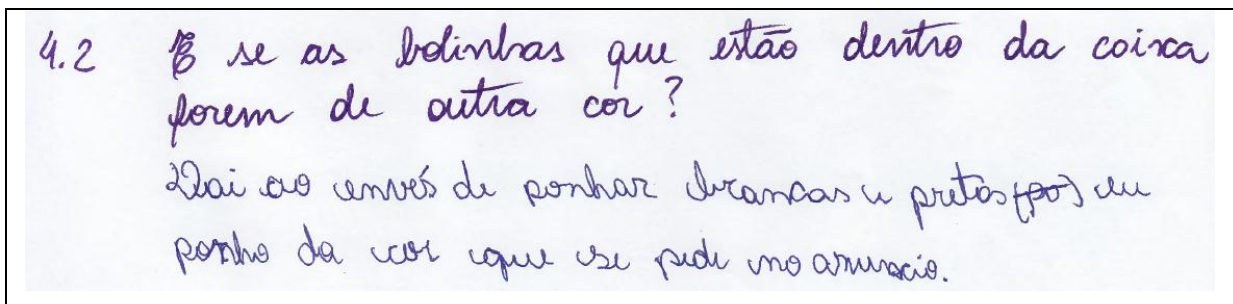 4.2 E se as bolinhas que estão dentro da coixa
forem de outra cor?
Dai ao envés de ponhar brancas e pretas (po) eu
ponho da cor que se pede no anuncio.